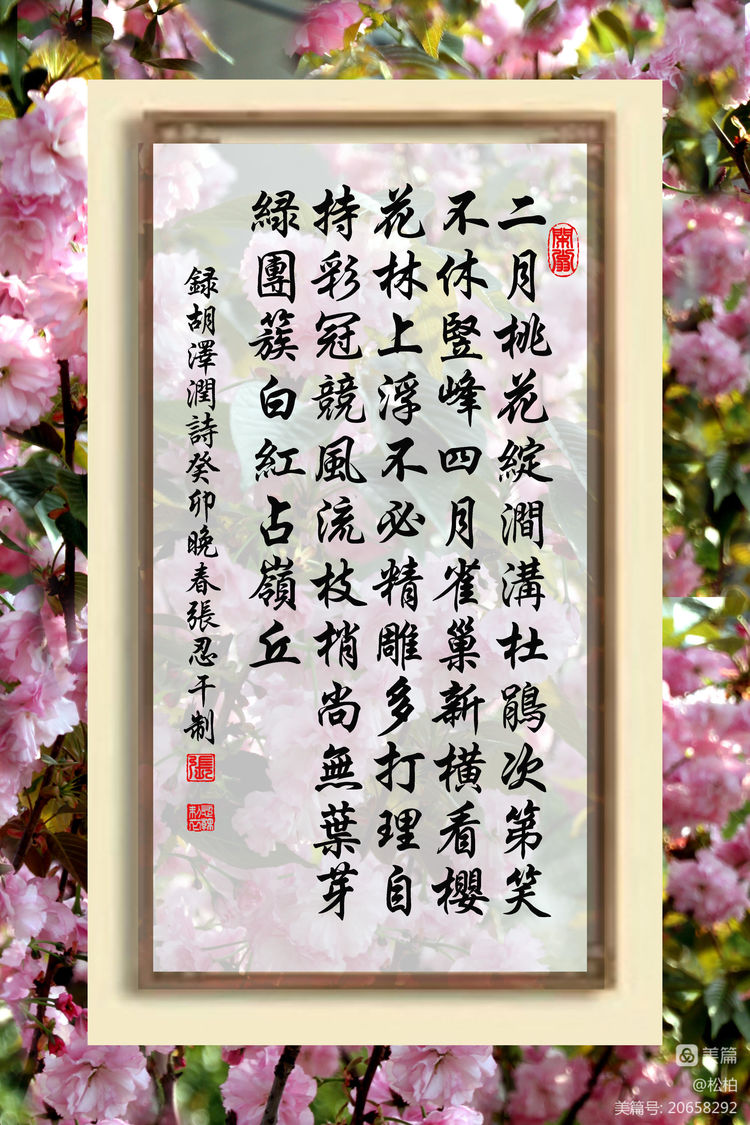 二月桃花綻澗溝杜鵑次第笑
不休竪峰四月雀巢新橫看櫻
花林上浮不必精雕多打理自
持彩冠競風流枝梢尚無葉芽
緑團簇白紅占嶺丘
録胡澤潤詩癸卯晚春張忍干制
張
美篇
@松柏
美篇号: 20658292